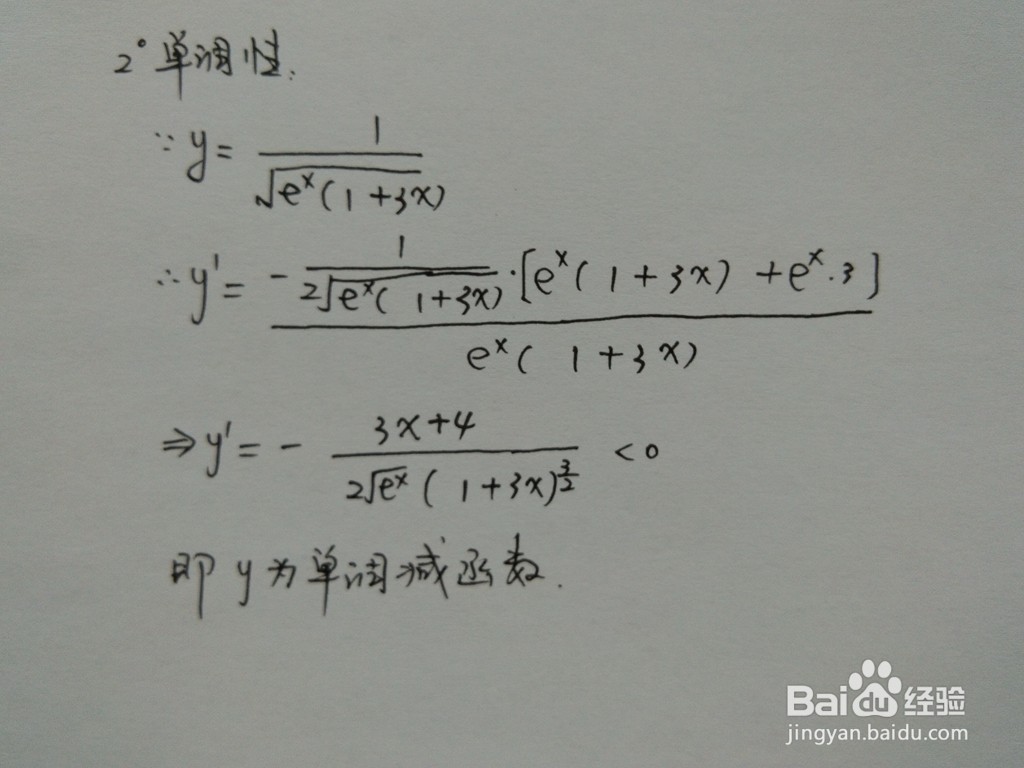 2° 单调性.
∵ y = 1 / √(e^x(1+3x))
∴ y' = - 1/(2√(e^x(1+3x))) · [e^x(1+3x) + e^x·3] / e^x(1+3x)
⇒ y' = - (3x+4) / (2√(e^x) (1+3x)^(3/2)) < 0
即 y 为单调减函数.
Baidu 经验
jingyan.baidu.com